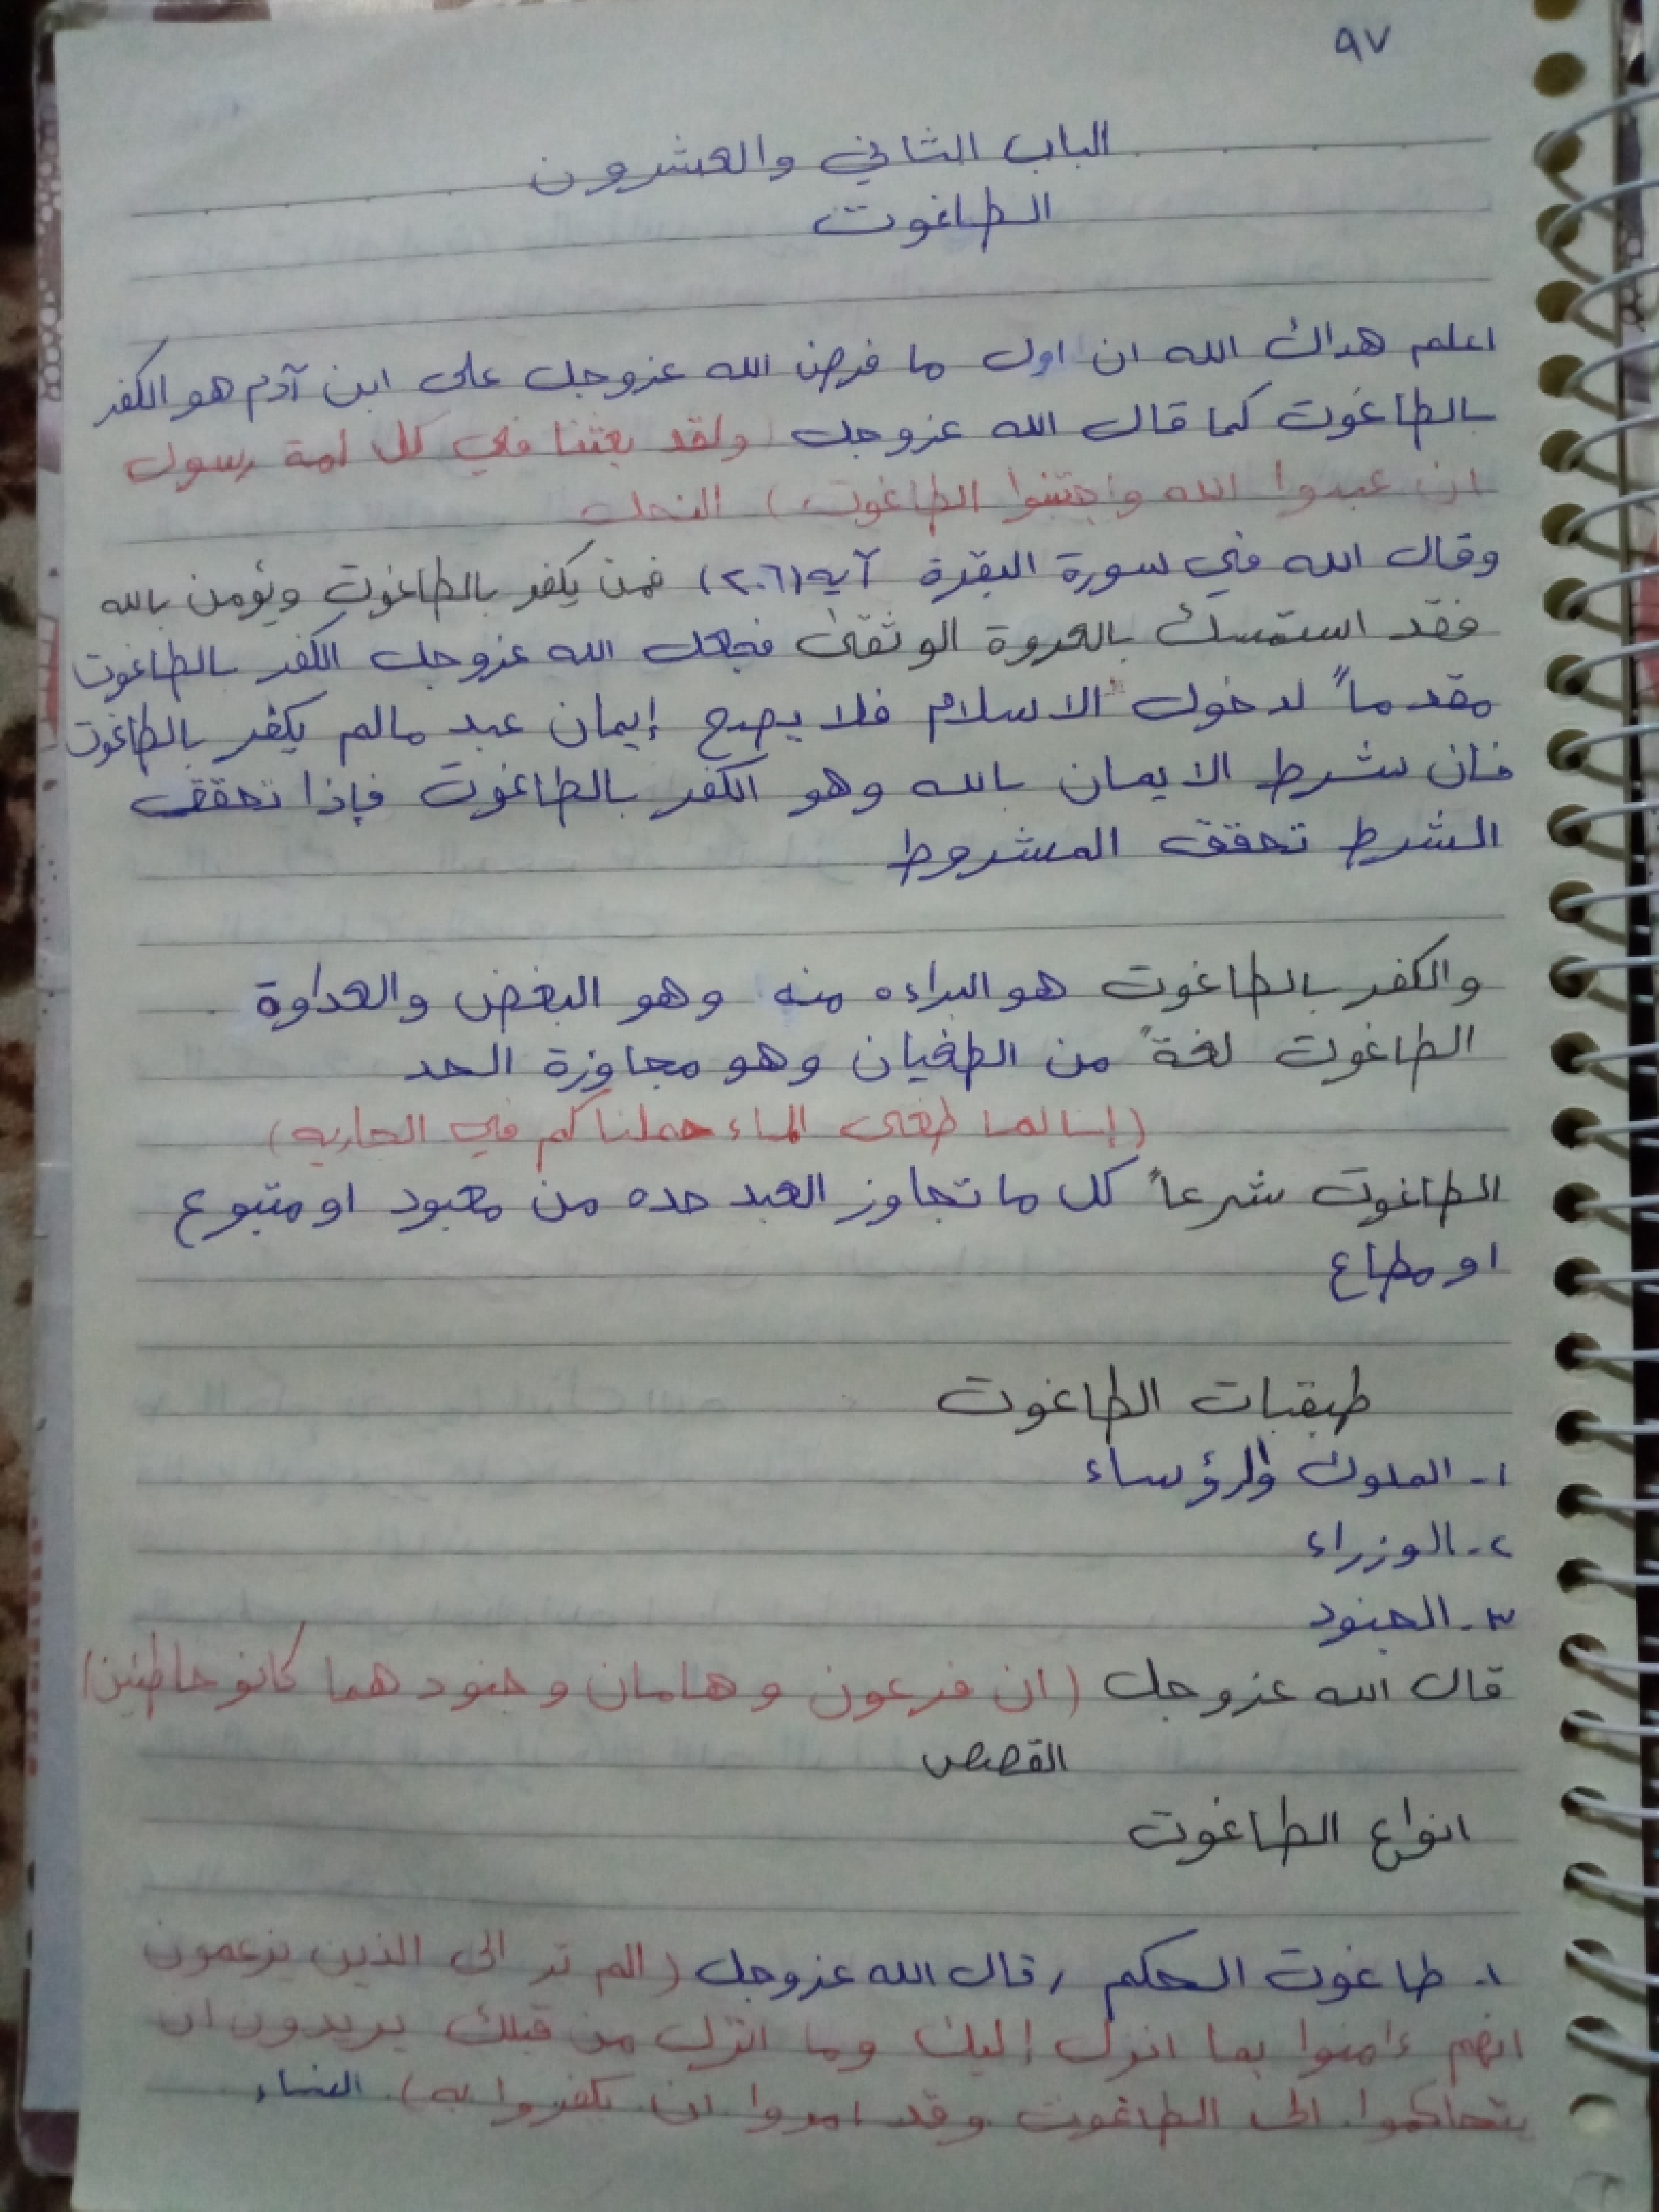 ٩٧
الباب الثاني والعشرون
الطاغوت
اعلم هداك الله ان اول ما فرض الله عزوجل على ابن آدم هو الكفر
بالطاغوت كما قال الله عزوجل (ولقد بعثنا في كل امة رسول
ان عبدوا الله واجتنبوا الطاغوت) النحل
وقال الله في سورة البقرة آيه (٢٠٦) فمن يكفر بالطاغوت ويؤمن بالله
فقد استمسك بالعروة الوثقى فجعل الله عزوجل الكفر بالطاغوت
مقدماً لدخول الاسلام فلا يصح إيمان عبد مالم يكفر بالطاغوت
فان شرط الايمان بالله وهو الكفر بالطاغوت فإذا تحقق
الشرط تحقق المشروط
والكفر بالطاغوت هو البراءه منه وهو البغض والعداوة
الطاغوت لغةً من الطغيان وهو مجاوزة الحد
(إنا لما طغى الماء حملناكم في الجاريه)
الطاغوت شرعاً كل ما تجاوز العبد حده من معبود او متبوع
او مطاع
طبقات الطاغوت
١- الملوك والرؤساء
٢- الوزراء
٣- الجنود
قال الله عزوجل (ان فرعون وهامان وجنودهما كانو خاطئين)
القصص
انواع الطاغوت
١- طاغوت الحكم , قال الله عزوجل (الم تر الى الذين يزعمون
انهم ءامنوا بما انزل إليك وما انزل من قبلك يريدون ان
يتحاكموا الى الطاغوت وقد امروا ان يكفروا به) النساء